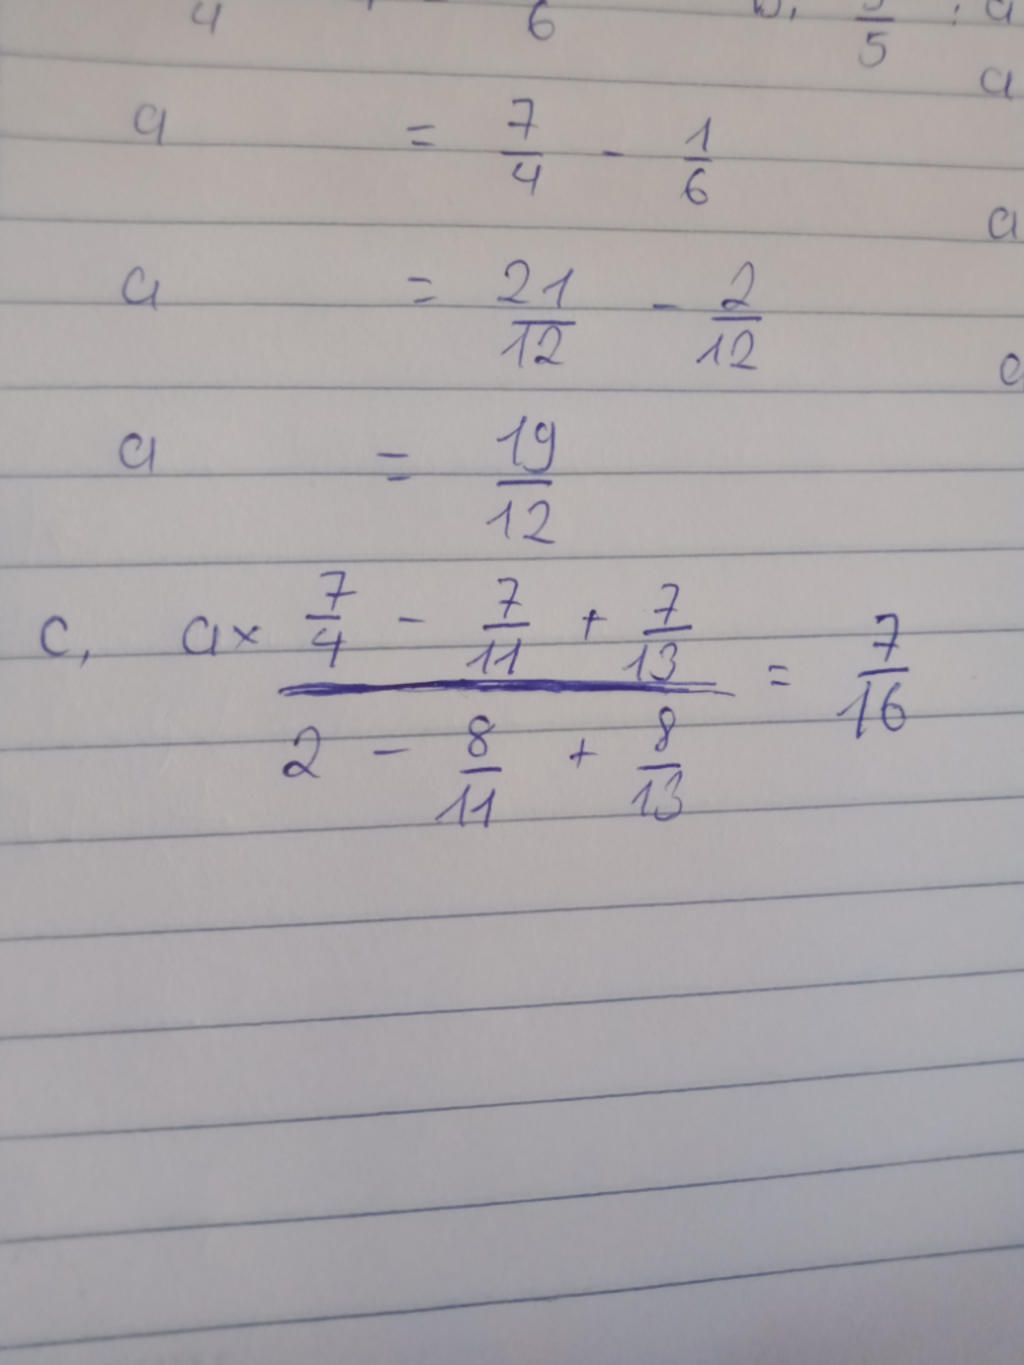 4 6 5 : a
a
a = 7/4 - 1/6
a
a = 21/12 - 2/12
a = 19/12
c, a× (7/4 - 7/11 + 7/13)/(2 - 8/11 + 8/13) = 7/16